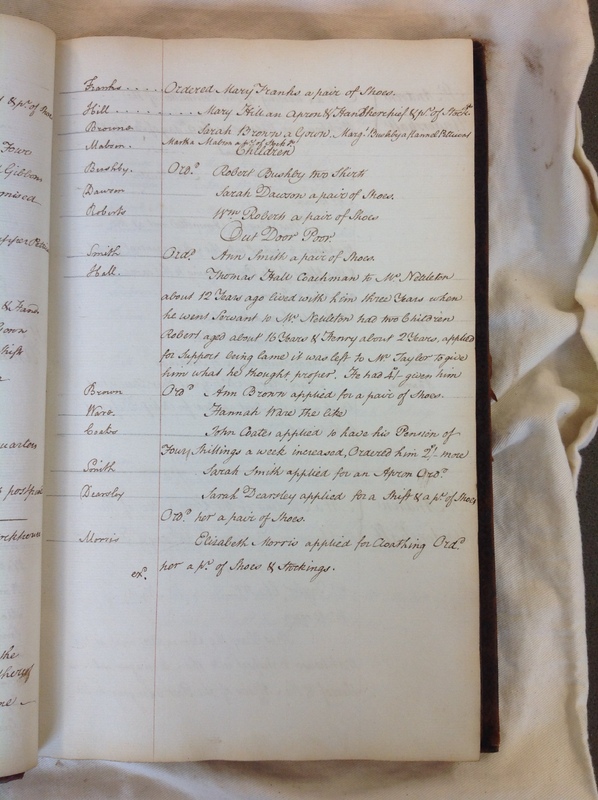 & pr. of Shoes
Four
Gibbons
mised
& Hand
Gown
Shift
the
Franks .... Ordered Mary Franks a pair of Shoes.
Hill ........ Mary Hill an Apron & Handkerchief & pr. of Stock.s
Browne Sarah Brown a Gown. Margt. Bushby a flannel Petticoat
Mabson. Martha Mabson a pr. of Stocks.
Children
Bushby. Ord.d Robert Bushby two Shirts
Dawson Sarah Dawson a pair of Shoes.
Roberts Wm. Roberts a pair of Shoes
Out Door Poor.
Smith Ord.d Ann Smith a pair of Shoes.
Hall. Thomas Hall Coachman to Mr. Nettleton
about 12 Years ago lived with him three Years when
he went Servant to Mr. Nettleton had two Children
Robert aged about 16 Years & Henry about 2 Years, applied
for Support being lame it was left to Mr. Taylor to give
him what he thought proper. He had 4/- given him
Brown Ord.d Ann Brown applied for a pair of Shoes.
Ware. Hannah Ware the like
Coates John Coates applied to have his Pension of
Four Shillings a week increased, Ordered him 2/- more
Smith Sarah Smith applied for an Apron Ord.d
Dearsley Sarah Dearsley applied for a Shift & a pr. of Shoes
Ord.d her a pair of Shoes.
Morris Elizabeth Morris applied for Cloathing Ord.d
ex.d her a pr. of Shoes & Stockings.